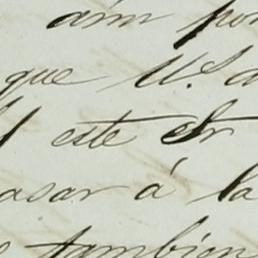 aún por
que U.S. a
este Sr
asar á la
tambien